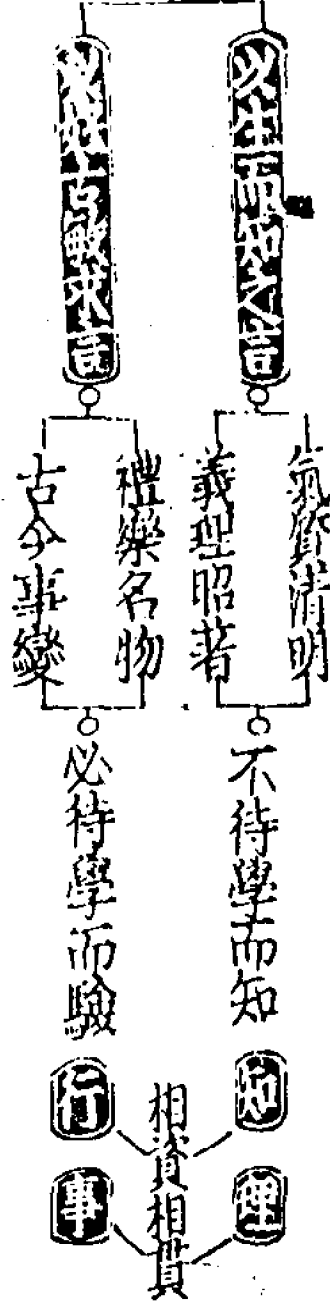 以生而知之言
氣質清明
義理昭著
不待學而知
知
理
以好古敏求言
禮樂名物
古今事變
必待學而驗
行
事
相資相貫